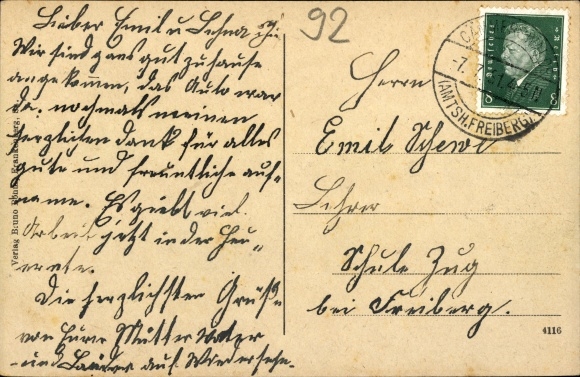 Lieber Emil u
Wir sind ganz gut zuhause
angekommen, das Auto war
da. nochmals meinen
herzlichen dank für alles
gute und freuntliche auf-
name. Es giebt viel
Arbeit jetzt in der Heu-
ernte.
Die herzlichsten Grüße
von Eurer Mutter Vater
und auf Wiedersehn.
Verlag Bruno
92
Deutsches Reich
8 8
(AMTSH. FREIBERG)
Herrn
Emil
Lehrer
Schule Zug
bei Freiberg.
4116